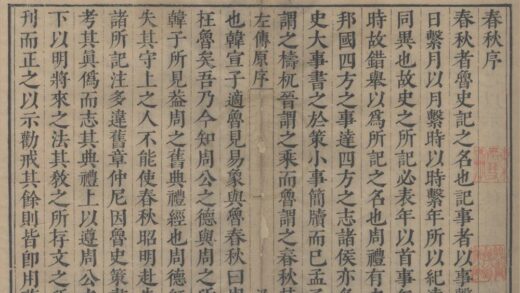 春秋序
春秋者魯史記之名也記事者以事繫
日繫月以月繫時以時繫年所以紀
同異也故史之所記必表年以首事
時故錯舉以爲所記之名也周禮有
邦國四方之事達四方之志諸侯亦
史大事書之於策小事簡牘而已孟
謂之檮杌晉謂之乘而魯謂之春秋
左傳原序
也韓宣子適魯見易象與魯春秋曰
在魯矣吾乃今知周公之德與周之
韓子所見蓋周之舊典禮經也周德
失其守上之人不能使春秋昭明赴
諸所記注多違舊章仲尼因魯史策
考其眞僞而志其典禮上以遵周公
下以明將來之法其敎之所存文之
刊而正之以示勸戒其餘則皆卽用